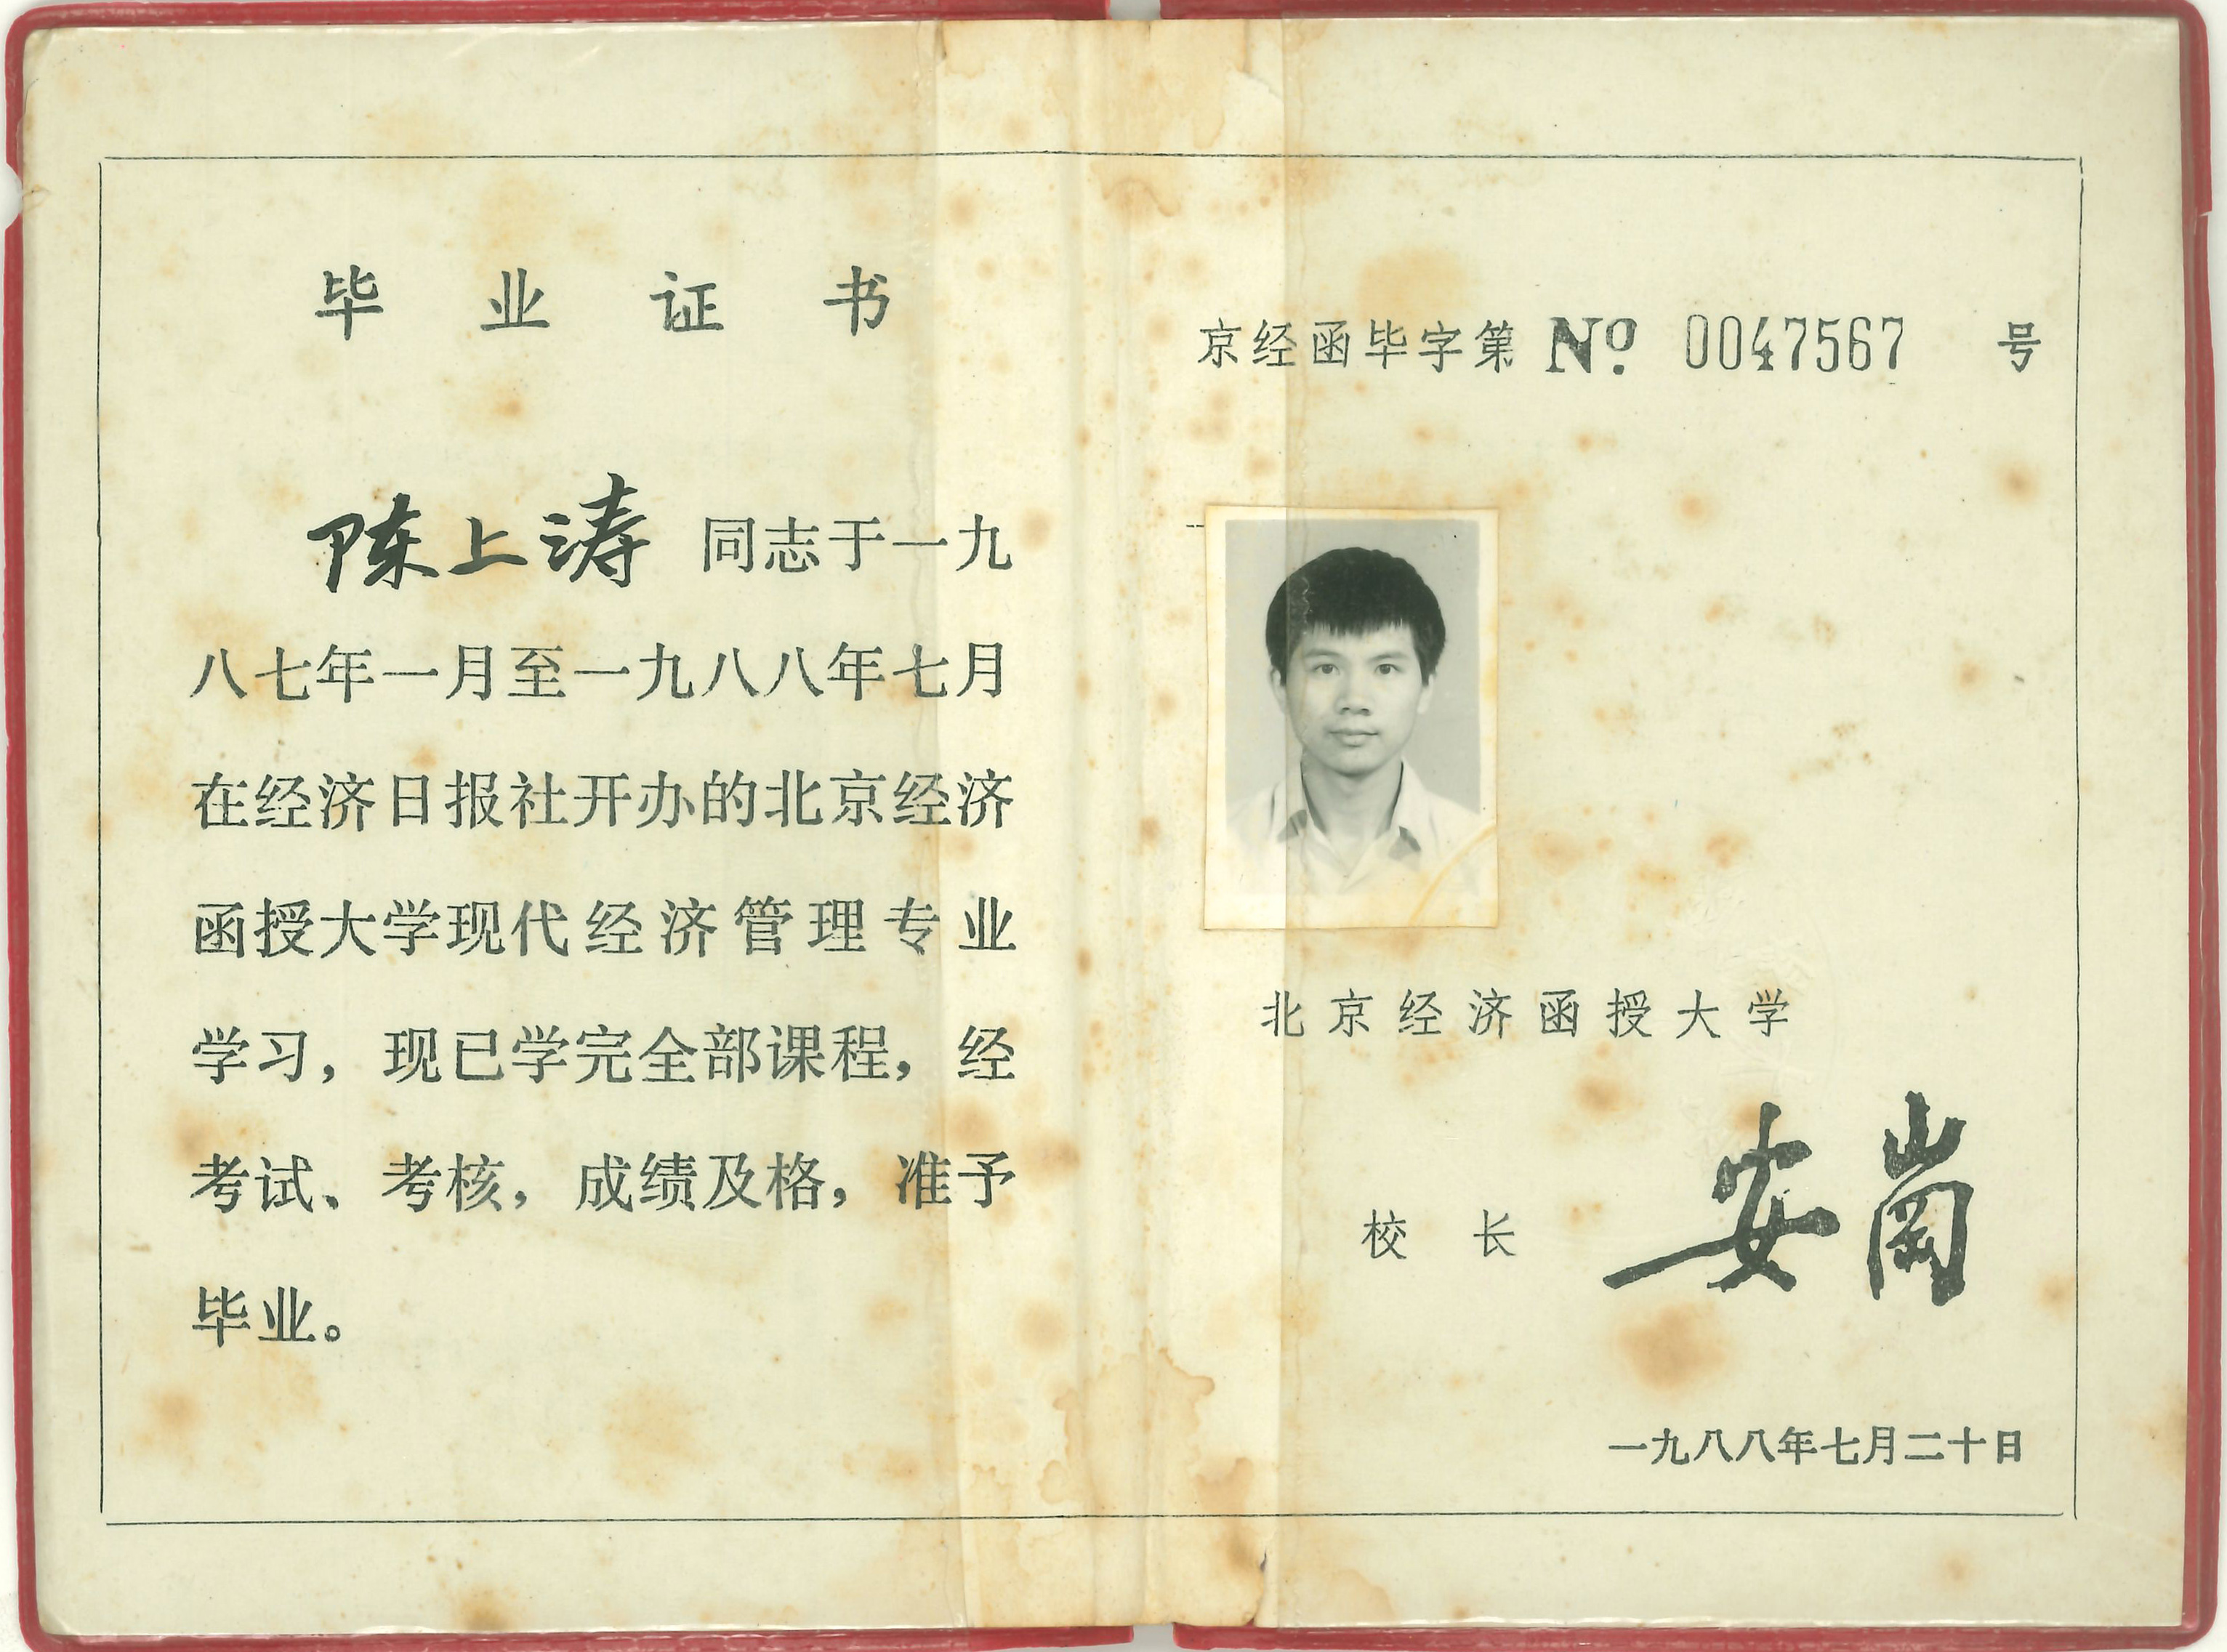 毕业证书
陈上涛 同志于一九
八七年一月至一九八八年七月
在经济日报社开办的北京经济
函授大学现代经济管理专业
学习，现已学完全部课程，经
考试、考核，成绩及格，准予
毕业。
京经函毕字第 No 0047567 号
北京经济函授大学
校长 安岗
一九八八年七月二十日